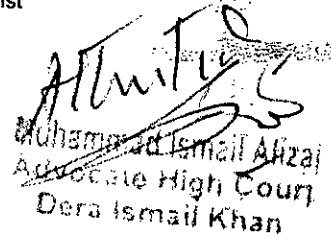 ist
Attested
Muhammad Ismail Alizai
Advocate High Court
Dera Ismail Khan